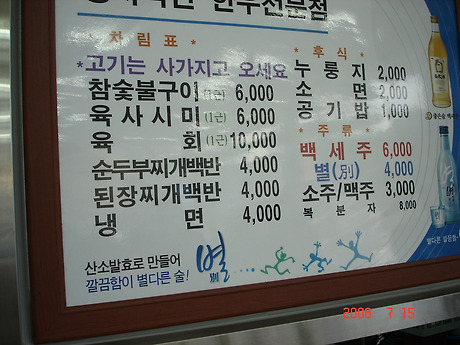 한우전문점
차림표
*고기는 사가지고 오세요
참숯불구이(1근) 6,000
육사시미(1근) 6,000
육 회(1근) 10,000
순두부찌개백반 4,000
된장찌개백반 4,000
냉 면 4,000
* 후식 *
누룽지 2,000
소 면 2,000
공기밥 1,000
* 주류 *
백세주 6,000
별(別) 4,000
소주/맥주 3,000
복분자 8,000
산소발효로 만들어
깔끔함이 별다른 술!
별
別
2008 7 15